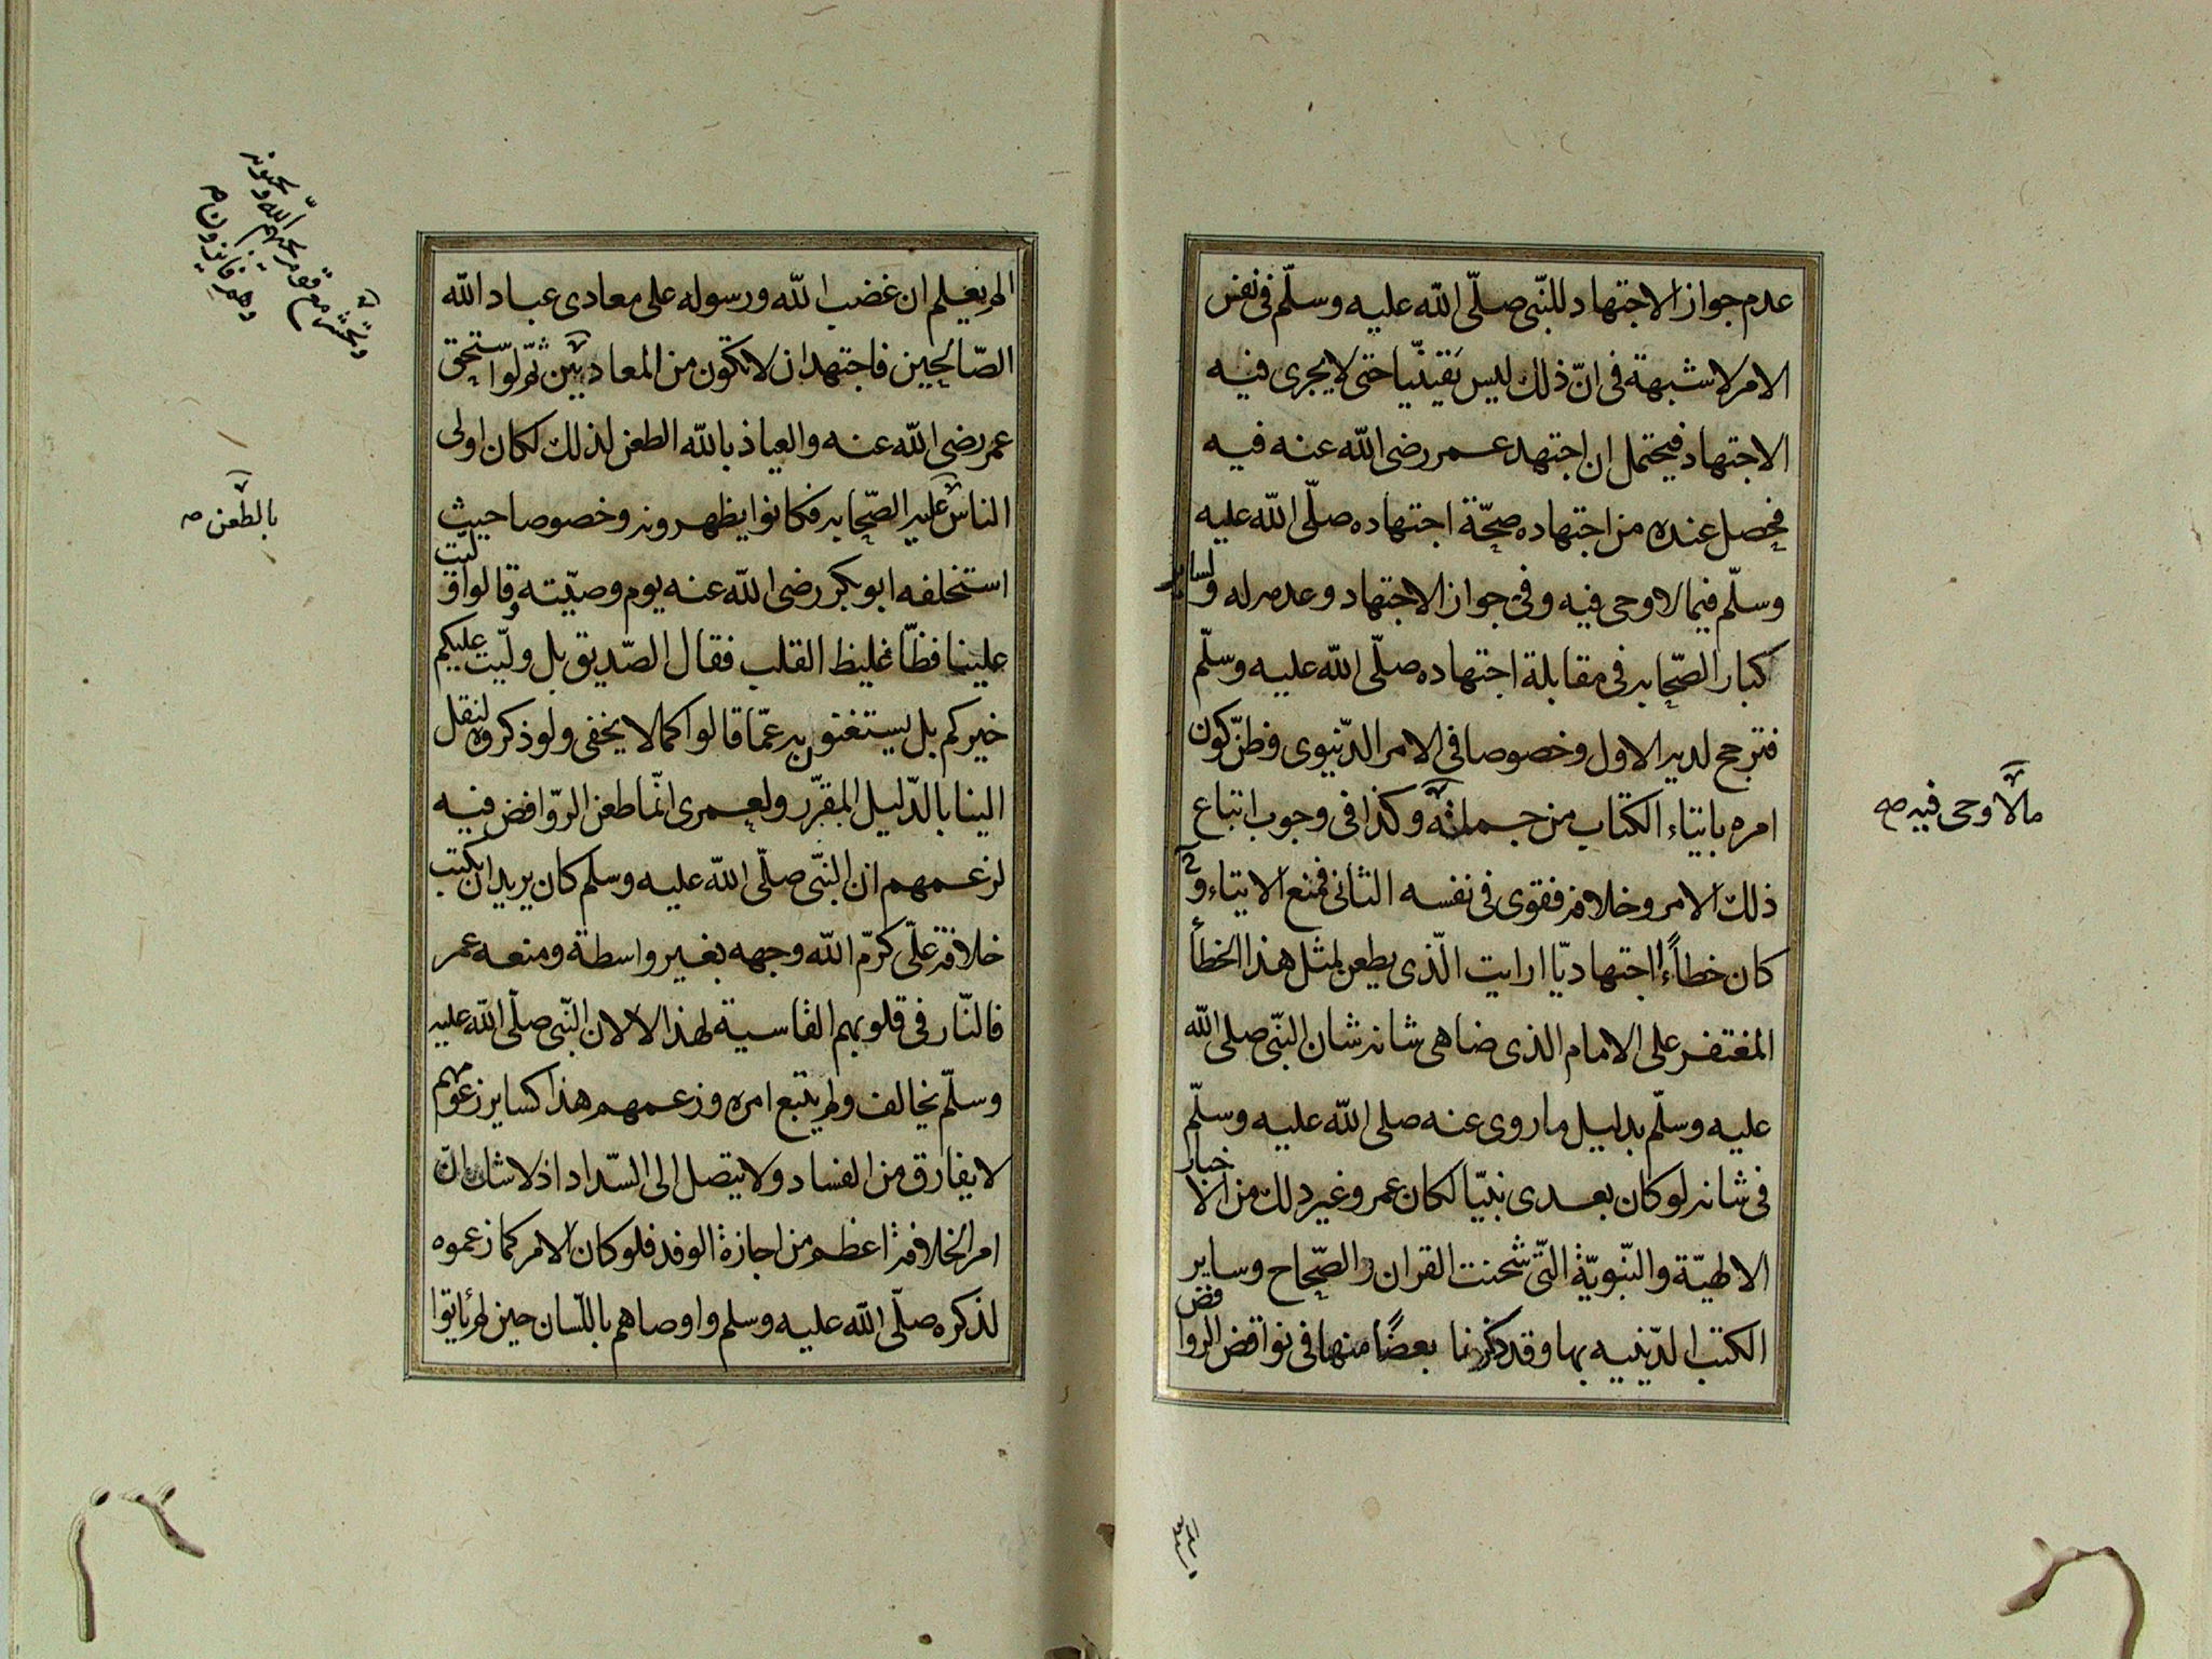 عدم جواز الاجتهاد للنّبى صلّى الله عليه وسلّم فى نفس
الامر لا شبهة فى انّ ذلك ليس يقينيّا حتى لا يجرى فيه
الاجتهاد فيحتمل ان اجتهد عمر رضى الله عنه فيه
فحصل عنده من اجتهاده صحّة اجتهاده صلّى الله عليه
وسلّم فيما لا وحى فيه وفى جواز الاجتهاد وعدمه له ولساير
كبار الصّحابه فى مقابلة اجتهاده صلّى الله عليه وسلّم
فترجح لديه الاول وخصوصا فى الامر الدّنيوى وظنّ كون
امره بايتاء الكتاب من جملته وكذا فى وجوب اتباع
مالا وحى فيه صه
ذلك الامر وخلافه فقوى فى نفسه الثانى فمنع الايتاء و
كان خطاءً اجتهاديّا ارايت الّذى يطعن لمثل هذا الخطأ
المغتفر على الامام الذى ضاهى شانه شان النبّى صلى الله
عليه وسلّم بدليل ما روى عنه صلى الله عليه وسلّم
فى شانه لو كان بعدى نبيّا لكان عمر وغير ذلك من الاخبار
الالهيّة والنّبويّة الّتى شحنت القران والصّحاح وساير
الكتب الدّينيه بها وقد ذكرنا بعضًا منها فى نواقض الروافض
الم يعلم ان غضب الله ورسوله على معادى عباد الله
الصّالحين فاجتهد ان لا تكون من المعاديين ثمّ لو استحق
وتحشر مع قوم يحبّهم الله ويحبونه
وهم فايزون صه
عمر رضى الله عنه والعياذ بالله الطعن لذلك لكان اولى
الناس عليه الصّحابه فكانوا يظهرونه وخصوصا حيث
بالطعن صه
استخلفه ابو بكر رضى الله عنه يوم وصيّته وقالوا وليّت
علينا فظّا غليظ القلب فقال الصّديق بل وليّت عليكم
خيركم بل يستغنون به عمّا قالوا كما لا يخفى ولو ذكروه لنقل
الينا بالدّليل المقرّر ولعمرى انّما طعن الروّافض فيه
لزعمهم ان النبّى صلّى الله عليه وسلم كان يريد ان يكتب
خلافة علىّ كرّم الله وجهه بغير واسطة ومنعه عمر
فالنّار فى قلوبهم القاسية لهذا لا لان النّبى صلّى الله عليه
وسلّم يخالف ولم يتبع امره وزعمهم هذا كساير زعومهم
لا يفارق من الفساد ولا يتصل الى السّداد اذ لا شك انّ
امر الخلافة اعظم من اجازة الوفد فلو كان الامر كما زعموه
لذكره صلّى الله عليه وسلم واوصاهم باللّسان حين لم ياتوا